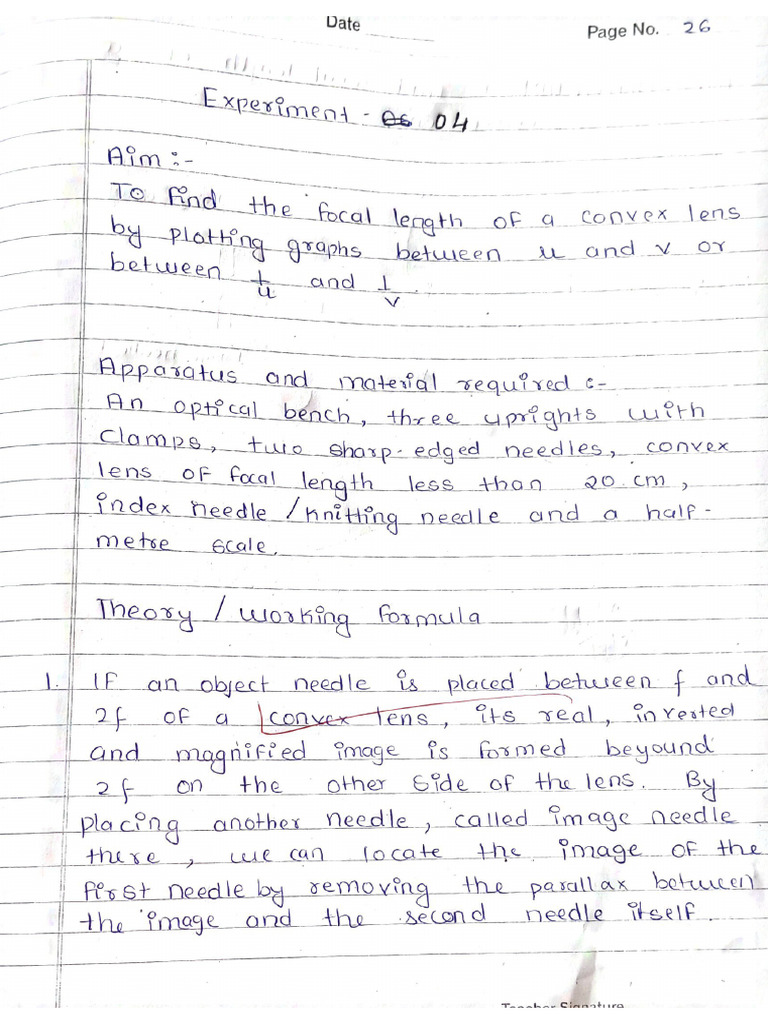 Date
Page No. 26
Experiment - 04
Aim :-
To find the focal length of a convex lens
by plotting graphs between u and v or
between 1/u and 1/v.
Apparatus and material required :-
An optical bench, three uprights with
clamps, two sharp-edged needles, convex
lens of focal length less than 20 cm,
index needle / knitting needle and a half-
metre scale.
Theory / Working formula
1. If an object needle is placed between f and
2f of a convex lens, its real, inverted
and magnified image is formed beyound
2f on the other side of the lens. By
placing another needle, called image needle
there, we can locate the image of the
first needle by removing the parallax between
the image and the second needle itself.
Teacher Signature